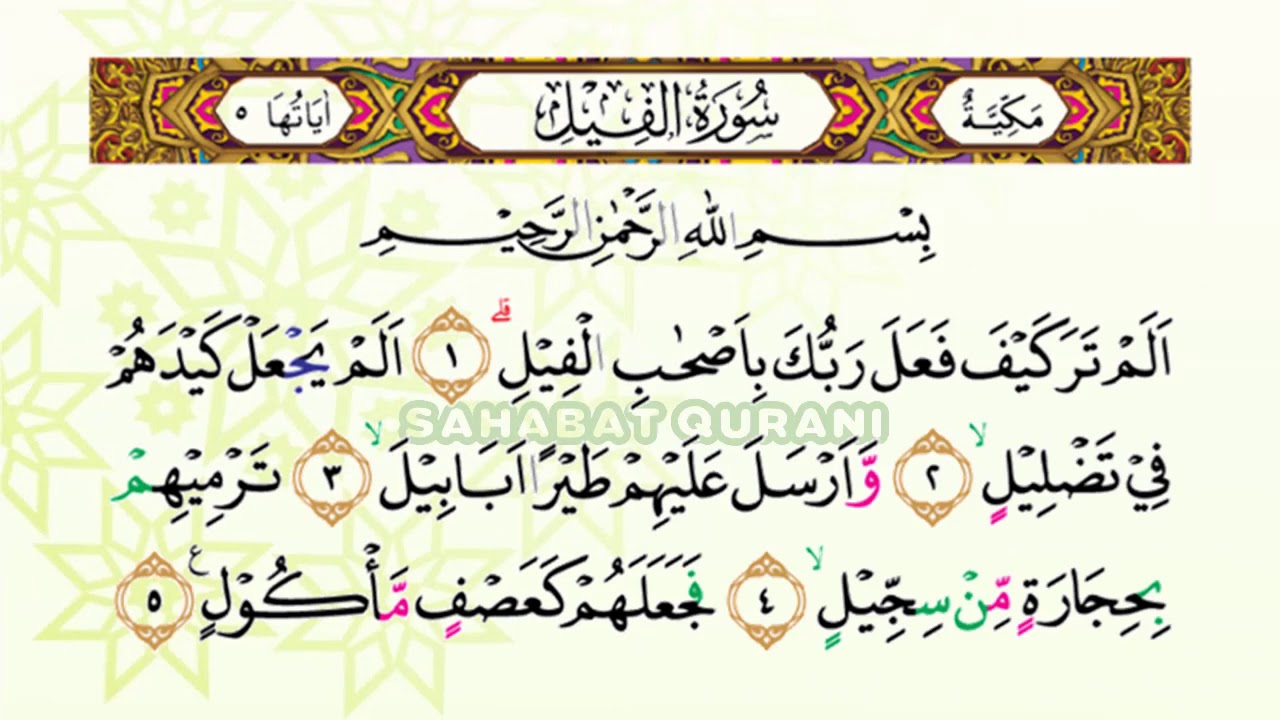 مَكِّيَّةٌ سُورَةُ الْفِيْلِ اٰيَاتُهَا ٥
بِسْمِ اللّٰهِ الرَّحْمٰنِ الرَّحِيْمِ
اَلَمْ تَرَ كَيْفَ فَعَلَ رَبُّكَ بِاَصْحٰبِ الْفِيْلِۗ ١ اَلَمْ يَجْعَلْ كَيْدَهُمْ
SAHABAT QURANI
فِيْ تَضْلِيْلٍۙ ٢ وَّاَرْسَلَ عَلَيْهِمْ طَيْرًا اَبَابِيْلَۙ ٣ تَرْمِيْهِمْ
بِحِجَارَةٍ مِّنْ سِجِّيْلٍۙ ٤ فَجَعَلَهُمْ كَعَصْفٍ مَّأْكُوْلٍ ࣖ ٥